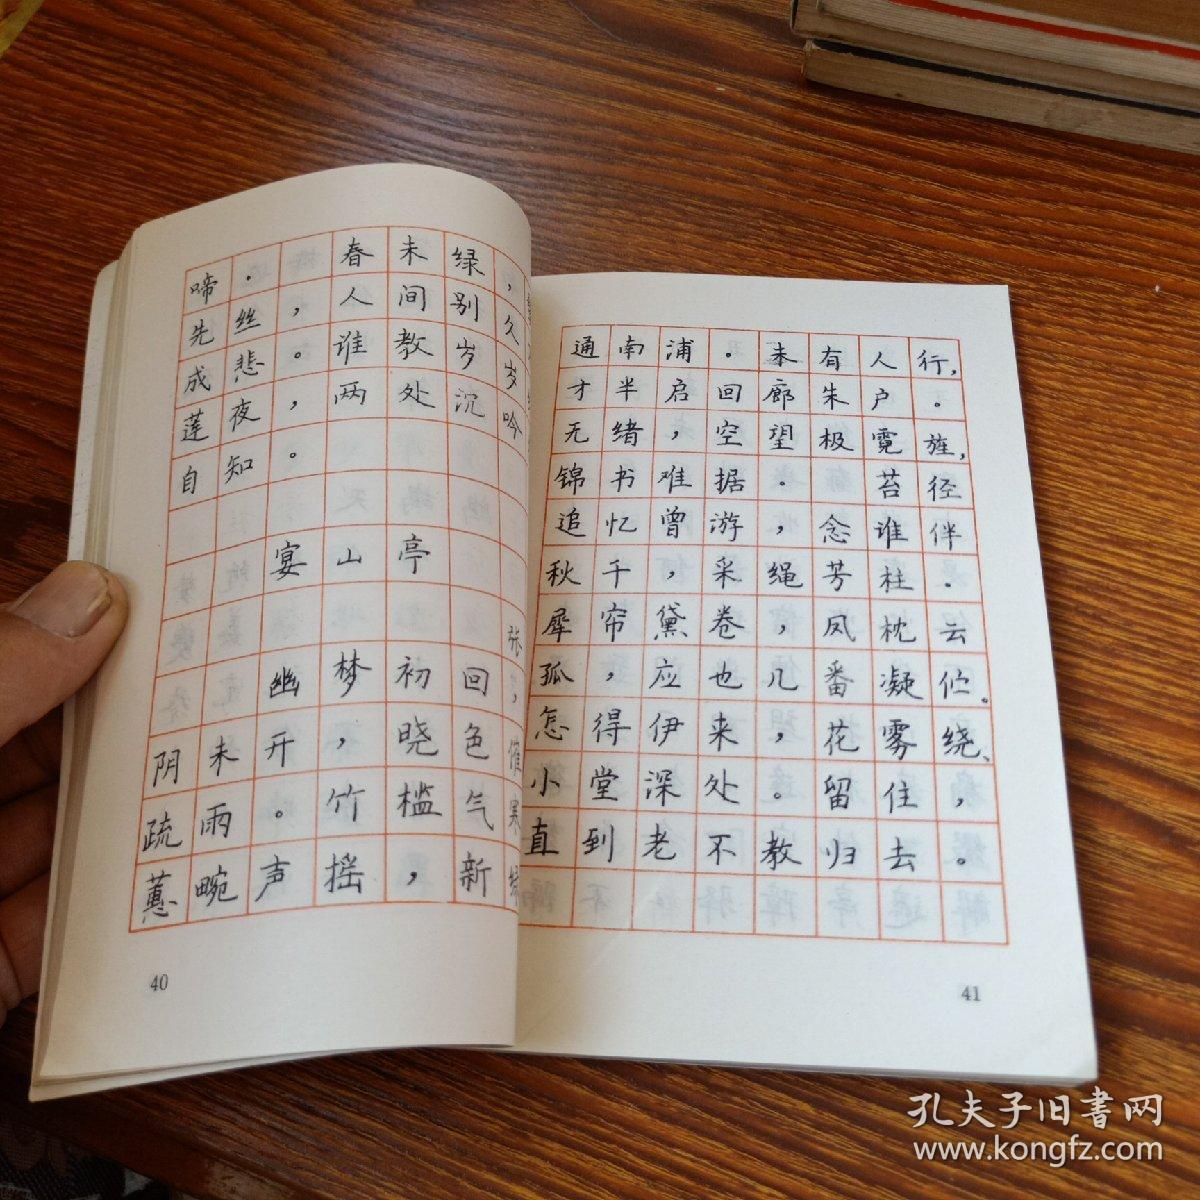 啼．春未绿，
先丝，人间别久
成悲。谁教岁岁
莲夜，两处沉吟
自知。
宴山亭
张
幽梦初回，
阴未开，晓色催
疏雨。竹槛气寒
蕙畹声摇，新
40
通南浦．未有人行，
才半启回廊朱户。
无绪，空望极霓旌，
锦书难据．苔径
追忆曾游，念谁伴
秋千，采绳芳柱．
犀帘黛卷，凤枕云
孤，应也几番凝伫。
怎得伊来，花雾绕、
小堂深处。留住，
直到老不教归去。
41
孔夫子旧书网
www.kongfz.com